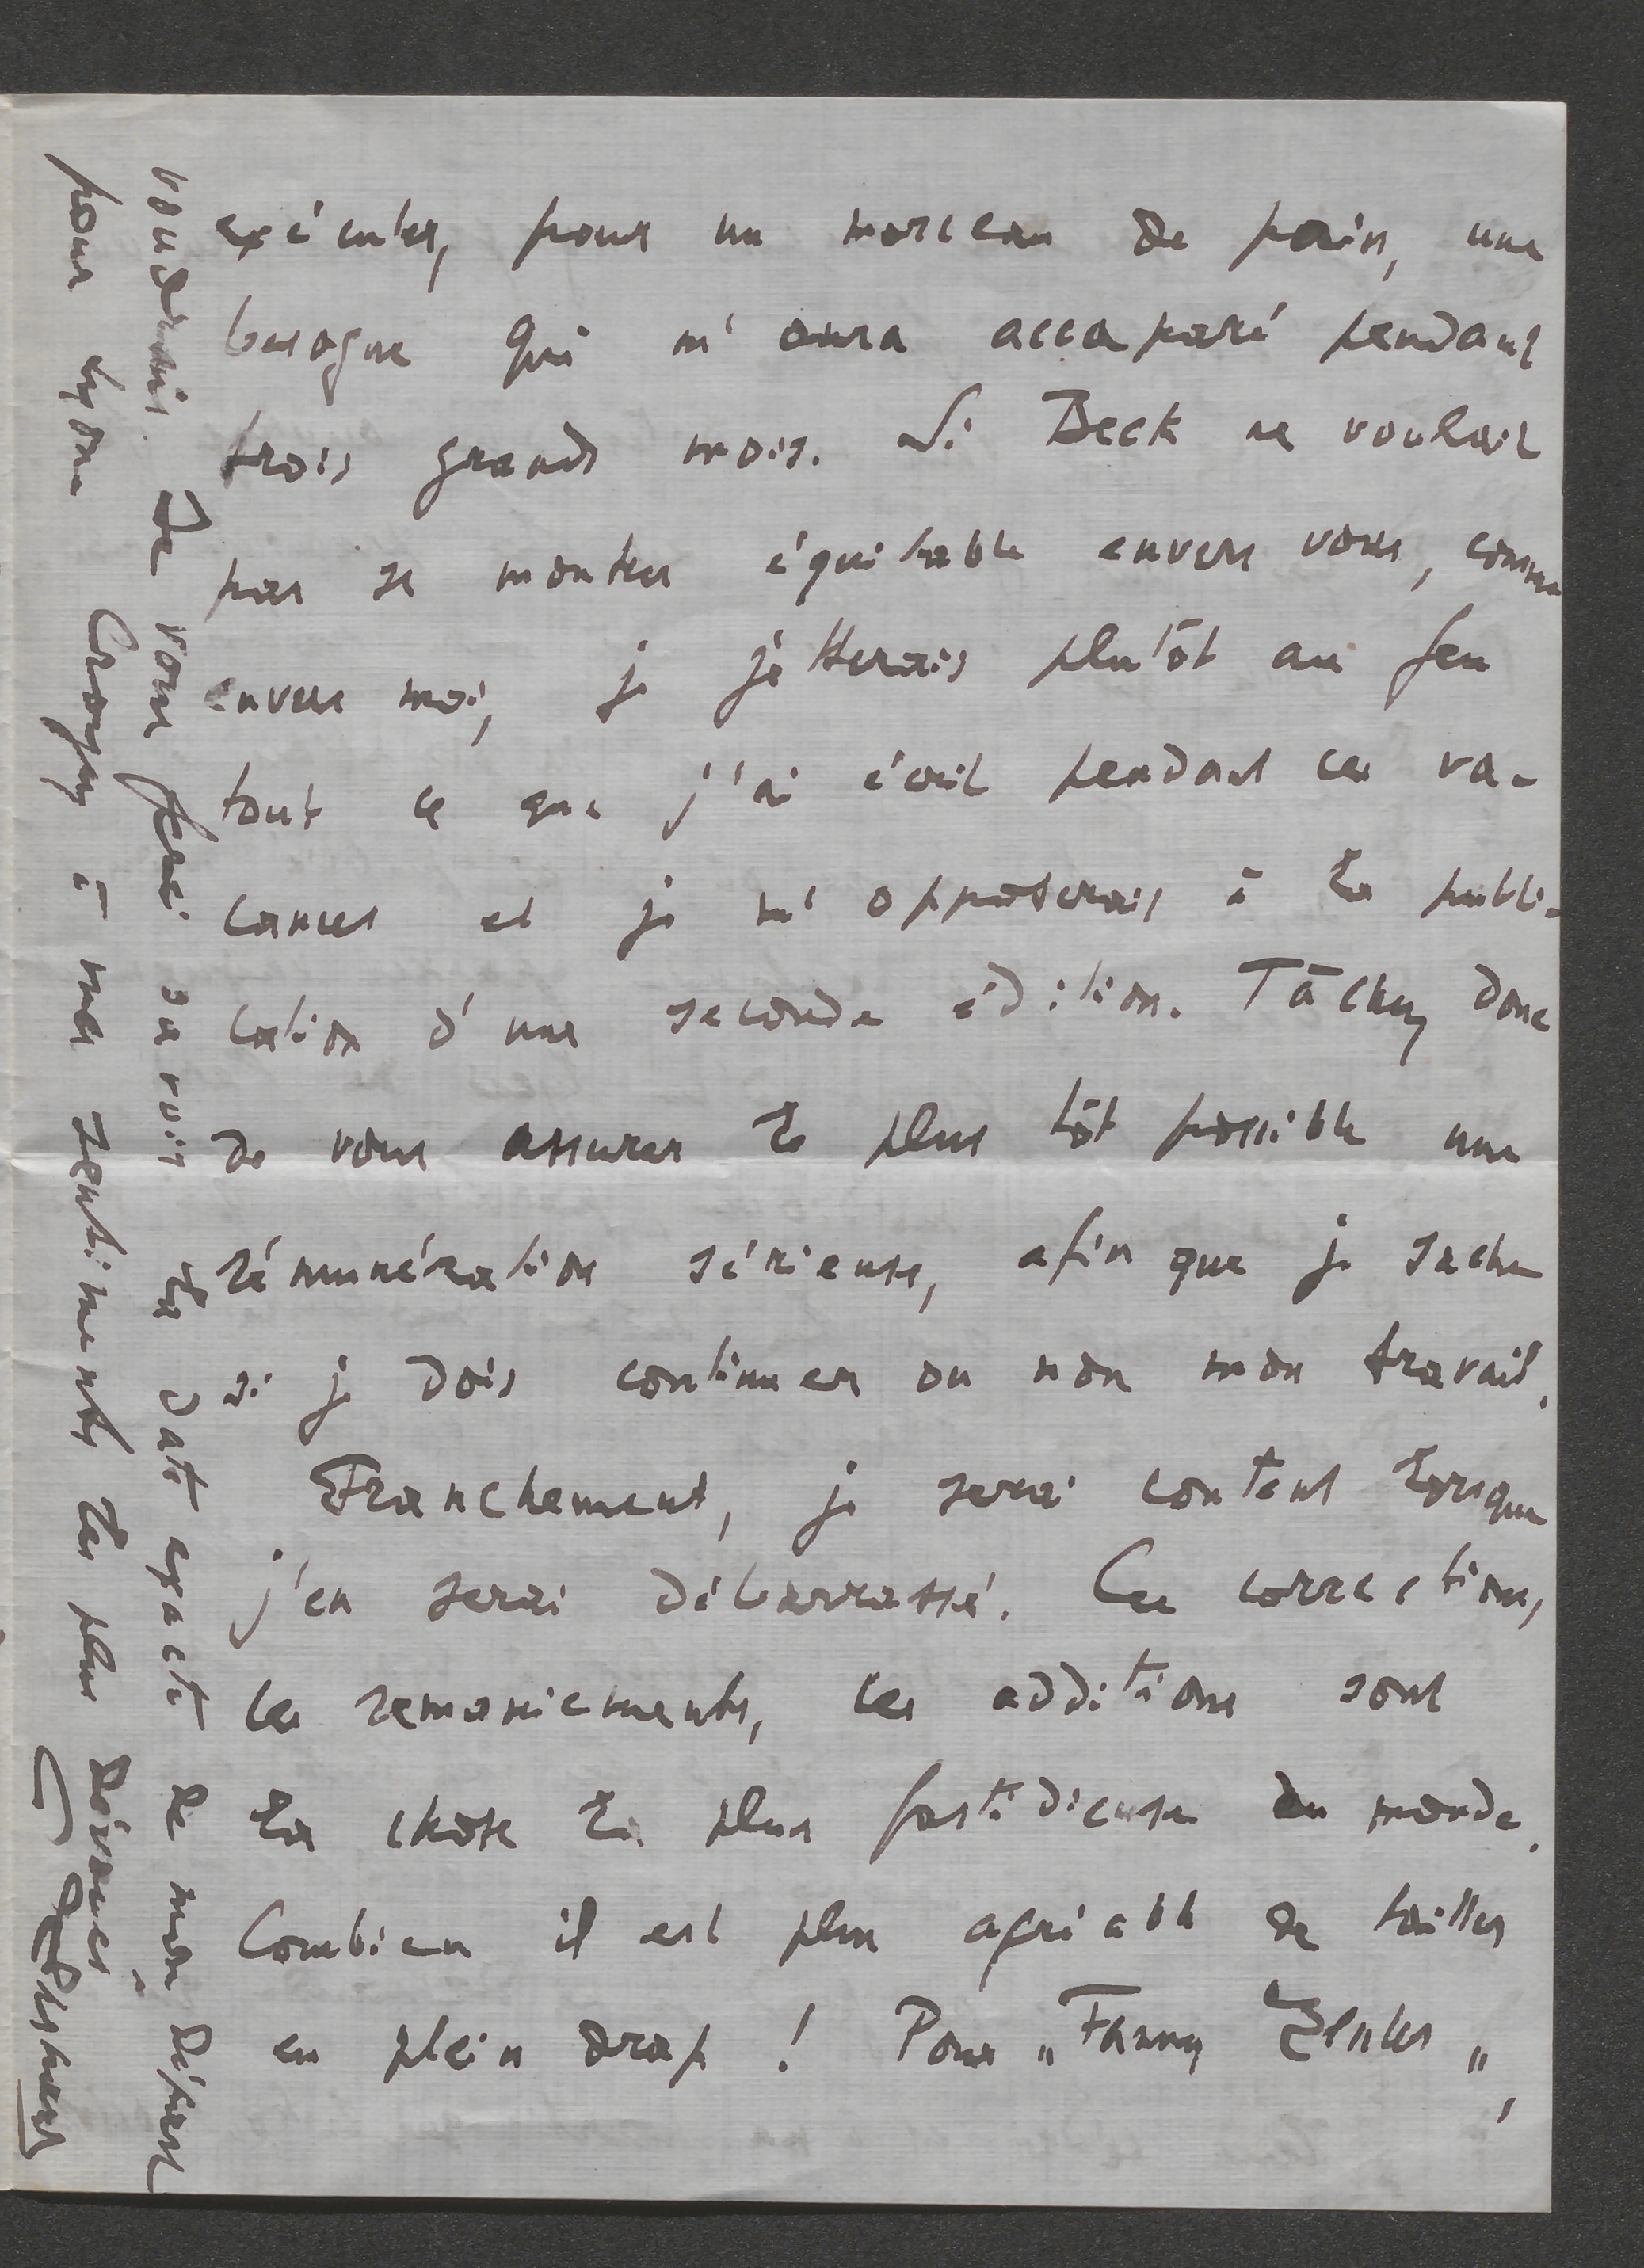 exécuter, pour un morceau de pain, une
besogne qui m'aura accaparé pendant
trois grands mois. Si Beck ne voulait
pas se montrer équitable envers vous, comme
envers moi, je jetterais plutôt au feu
tout ce que j'ai écrit pendant ces va-
cances et je m'opposerais à la publi-
cation d'une seconde édition. Tâchez donc
de vous assurer le plus tôt possible une
rémunération sérieuse, afin que je sache
si je dois continuer ou non mon travail.
Franchement, je serai content lorsque
j'en serai débarrassé. Ces corrections,
ces remaniements, ces additions sont
la chose la plus fastidieuse du monde.
Combien il est plus agréable de tailler
en plein drap ! Pour "Fanny Elssler",
voudrais. Je vous ferai savoir la date exacte de mon départ
pour Lyon. Croyez à mes sentiments les plus dévoués.